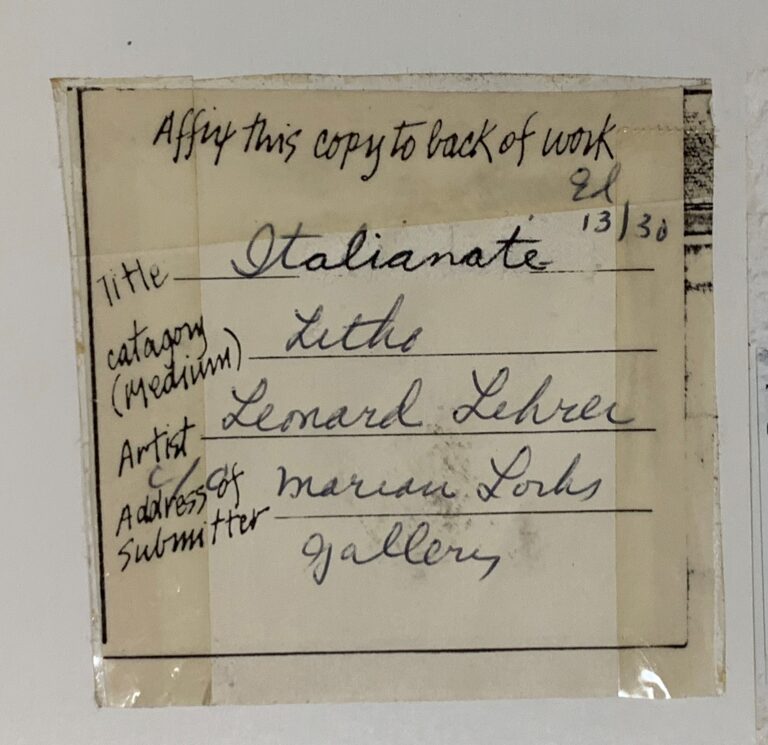 Affix this copy to back of work
Ed
13/30
Title Italianate
catagory
(Medium) Litho
Artist Leonard Lehrer
c/o
Address of Marian Locks
Submitter
Gallery